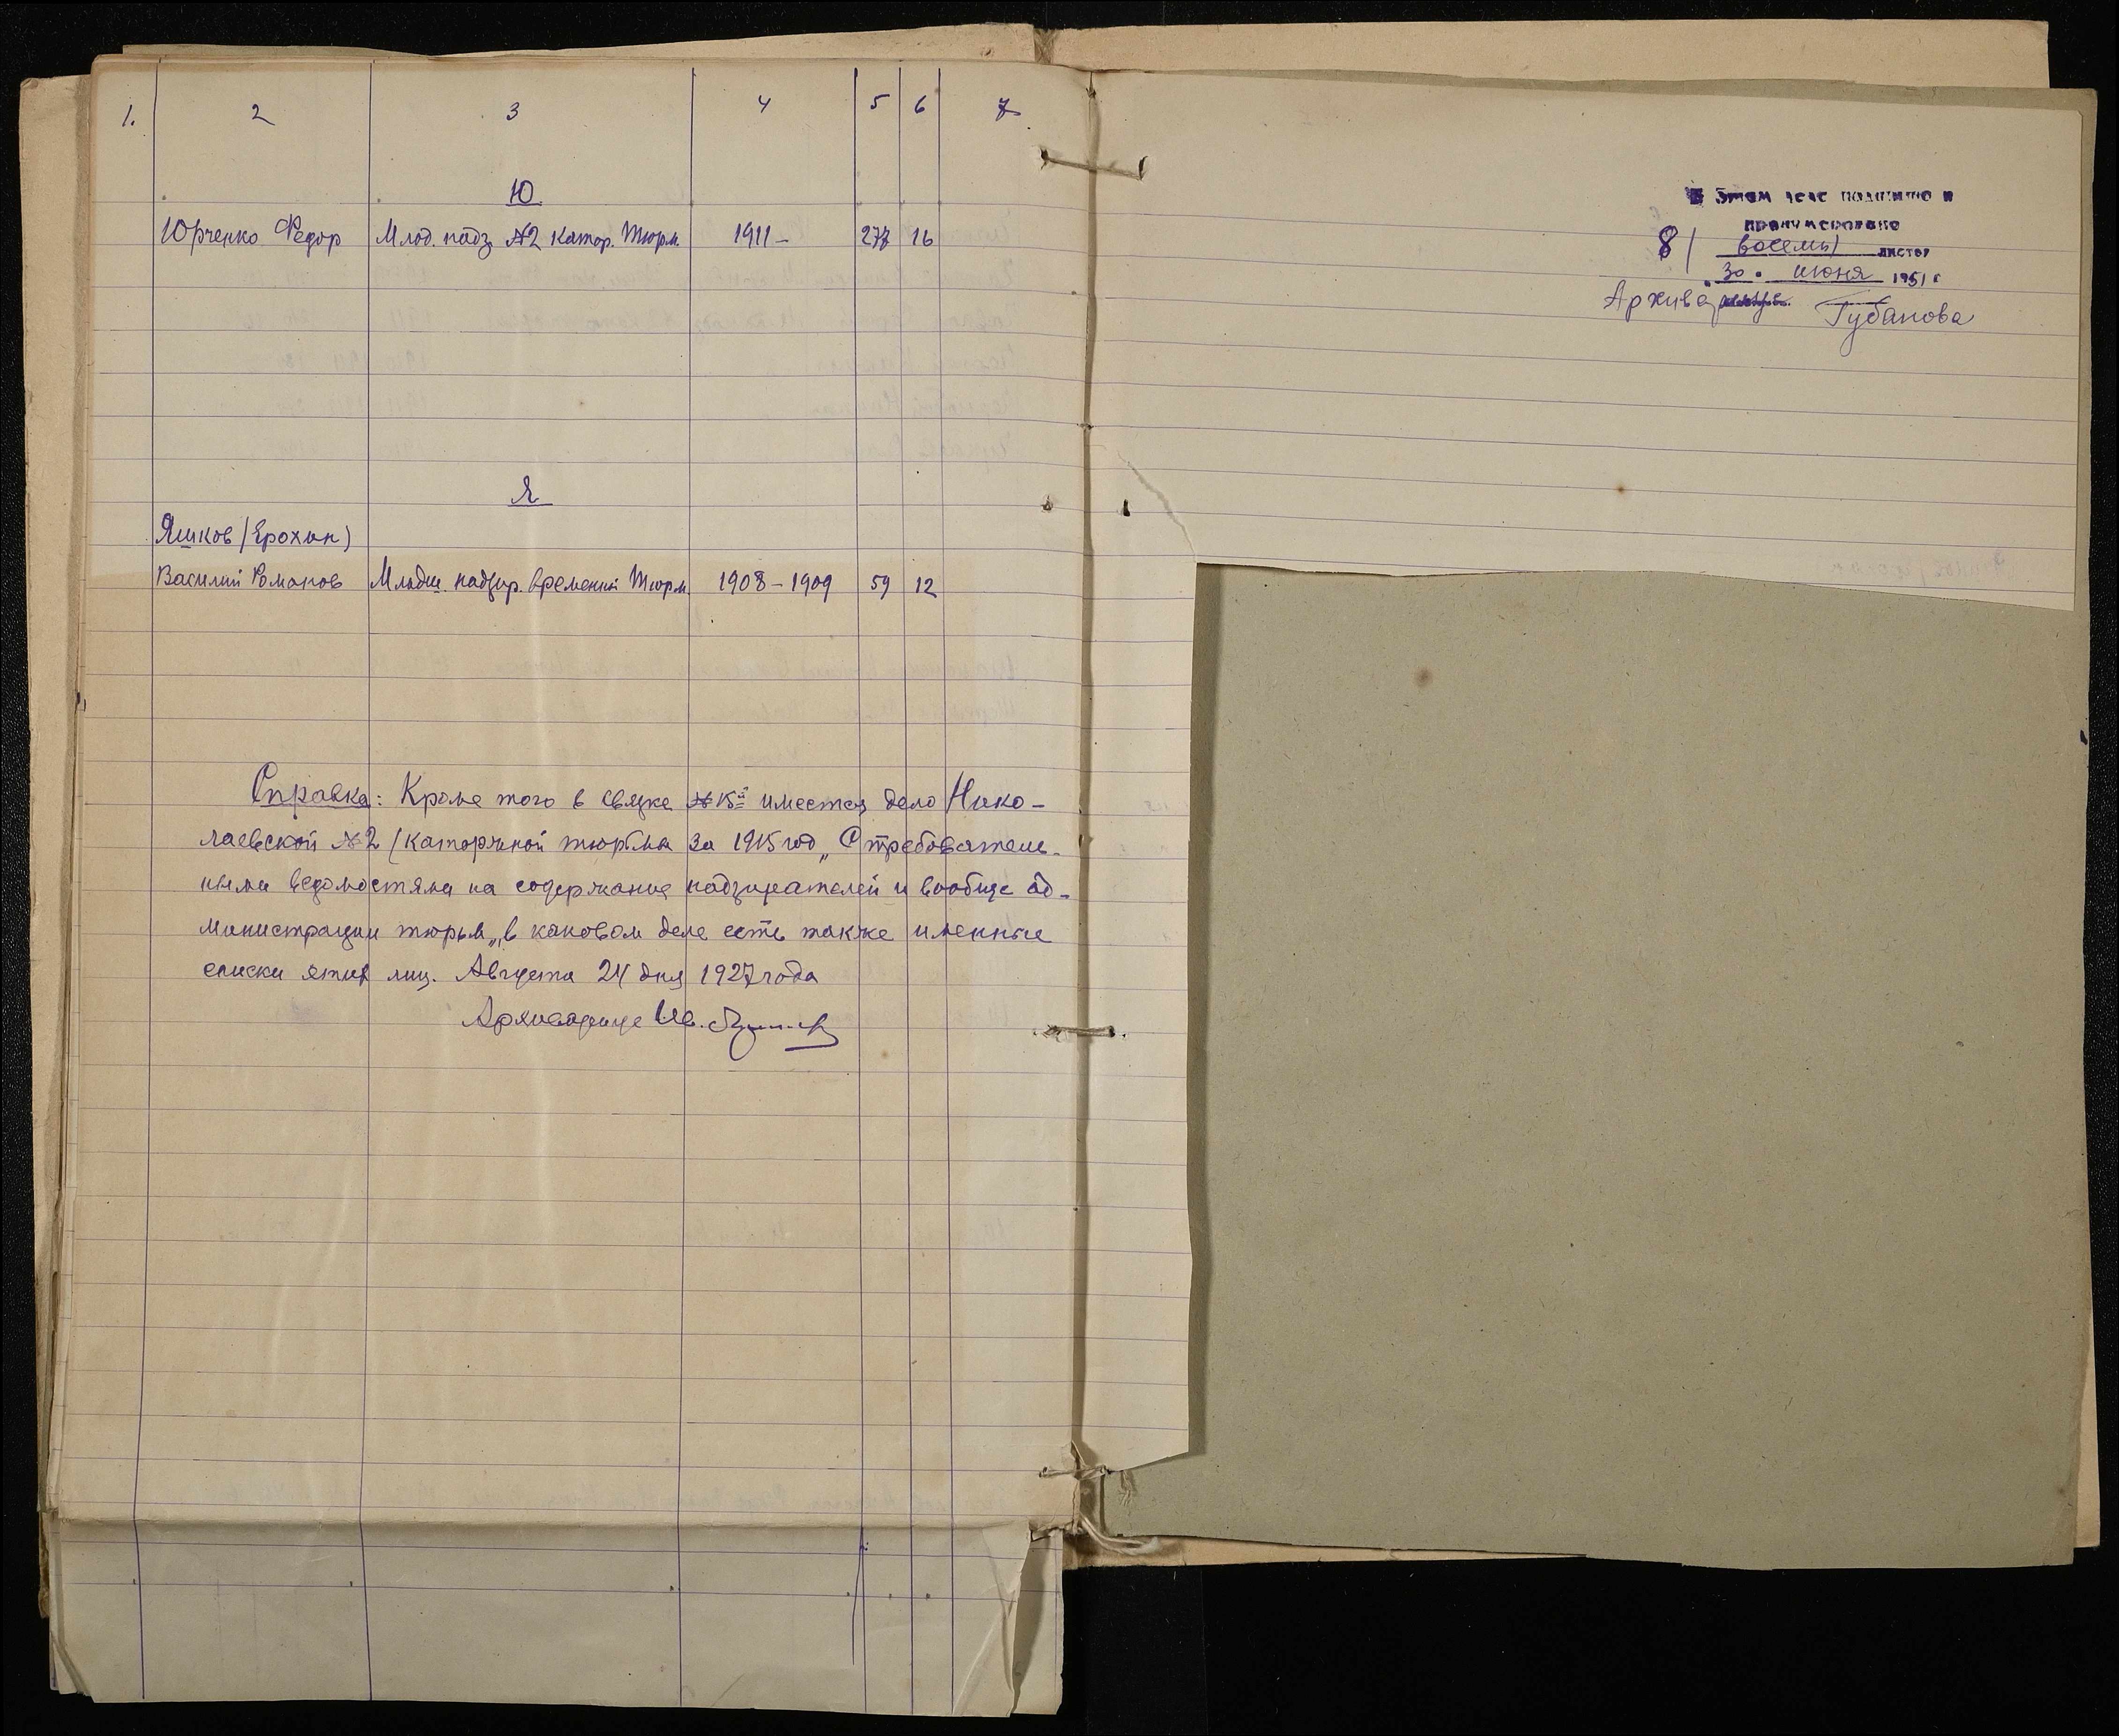 1. 2 3 4 5 6 7
Ю
Юрченко Федор Млад. надз. №2 катор. Тюрм. 1911 – 277 16
Я
Яшков (Ерохин)
Василий Романов Младш. надзир. временной Тюрм. 1908 – 1909 59 12
Справка: Кроме того в связке №15й имеется дело Нико-
лаевской №2 (каторжной тюрьмы за 1915 год „С требователь-
ными ведомостями на содержание надзирателей и вообще ад-
министрации тюрьм", в каковом деле есть также именные
списки этих лиц. Августа 24 дня 1927 года
Архивариус Ив.
В этом деле подшито и
пронумеровано
8 (восемь) листов
30. июня 1951 г
Губанова